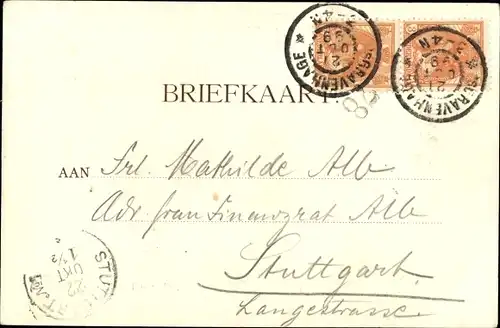 'S GRAVENHAGE 3-4N
21 OCT 99
'S GRAVENHAGE 3-4N
21 OCT 99
BRIEFKAART.
88
AAN Frl. Mathilde Alb
Adr frau Finanzrat Alb
Stuttgart
Langestrasse
STUTTGART
22 OKT
1 ½